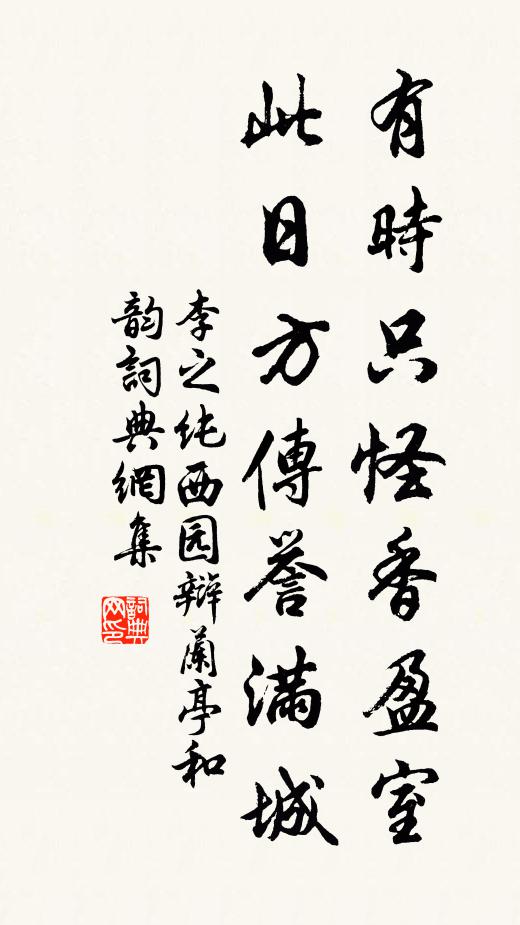 有時只怪香盈室
此日方傳譽滿城
李之純西园辯蘭亭和
韵詞典網集
詞典网印